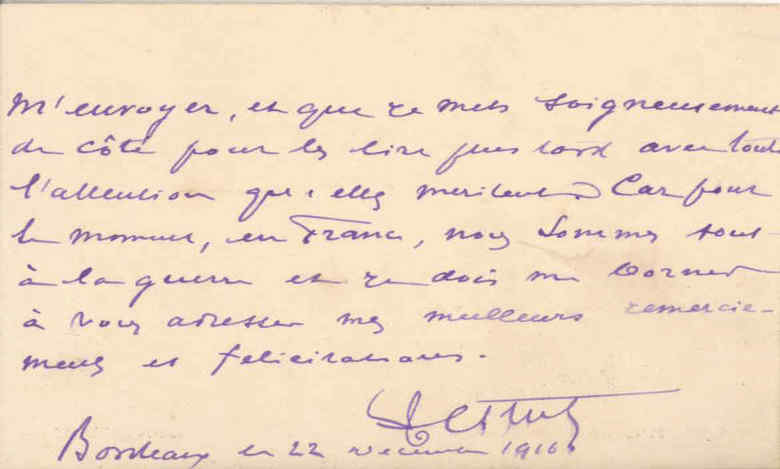 m'envoyer, et que je mets soigneusement
de côté pour les lire plus tard avec toute
l'attention qu'elles méritent. Car pour
le moment, en France, nous sommes tous
à la guerre et je dois me borner
à vous adresser mes meilleurs remercie-
ments et félicitations.
Bordeaux le 22 1916